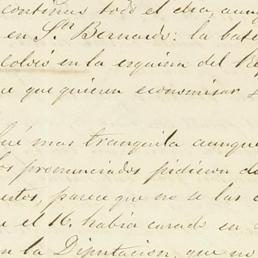 continuo todo el dia, aunq
en Sn. Bernardo: la bate
colocó en la esquina del
e que quieren economizar
ué mas tranquila aunque
os pronunciados pidieron d
stos, parece que no se las
e el 16. habia curado en
n la Diputacion, que no